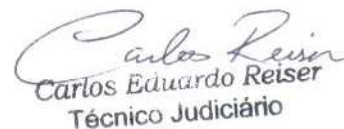 Carlos Reiser
Carlos Eduardo Reiser
Técnico Judiciário